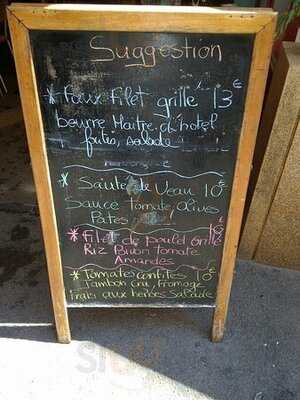 Suggestion
* Faux filet grillé 13€
beurre Maitre d'hotel
frites, salade
* Sauté de Veau 10€
Sauce tomate, olives
Pates
* Filet de poulet Grillé 10
Riz Pilion tomate
Amandes
* Tomates confites 10€
Jambon cru, fromage
frais aux herbes Salade